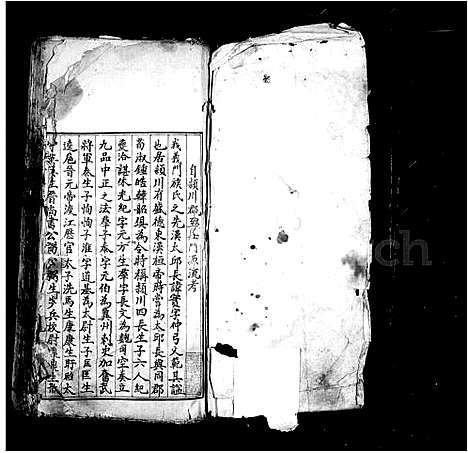 自潁川郡義門源流考
我義門族氏之先漢太邱長諱寔字仲弓文範其諡
也居潁川有盛德東漢桓帝時嘗為太邱長與同郡
荀淑鍾皓韓韶俱為令時稱潁川四長生子六人紀
諶洽諶休光紀字元方生群字長文為魏司空奏立
九品中正之法群子泰字元伯為冀州刺史加奮武
將軍泰生子恂恂子淮字道基為太尉生子匡匡生
逵庭晉元帝渡江歷官太子洗馬生康康生盱盱太